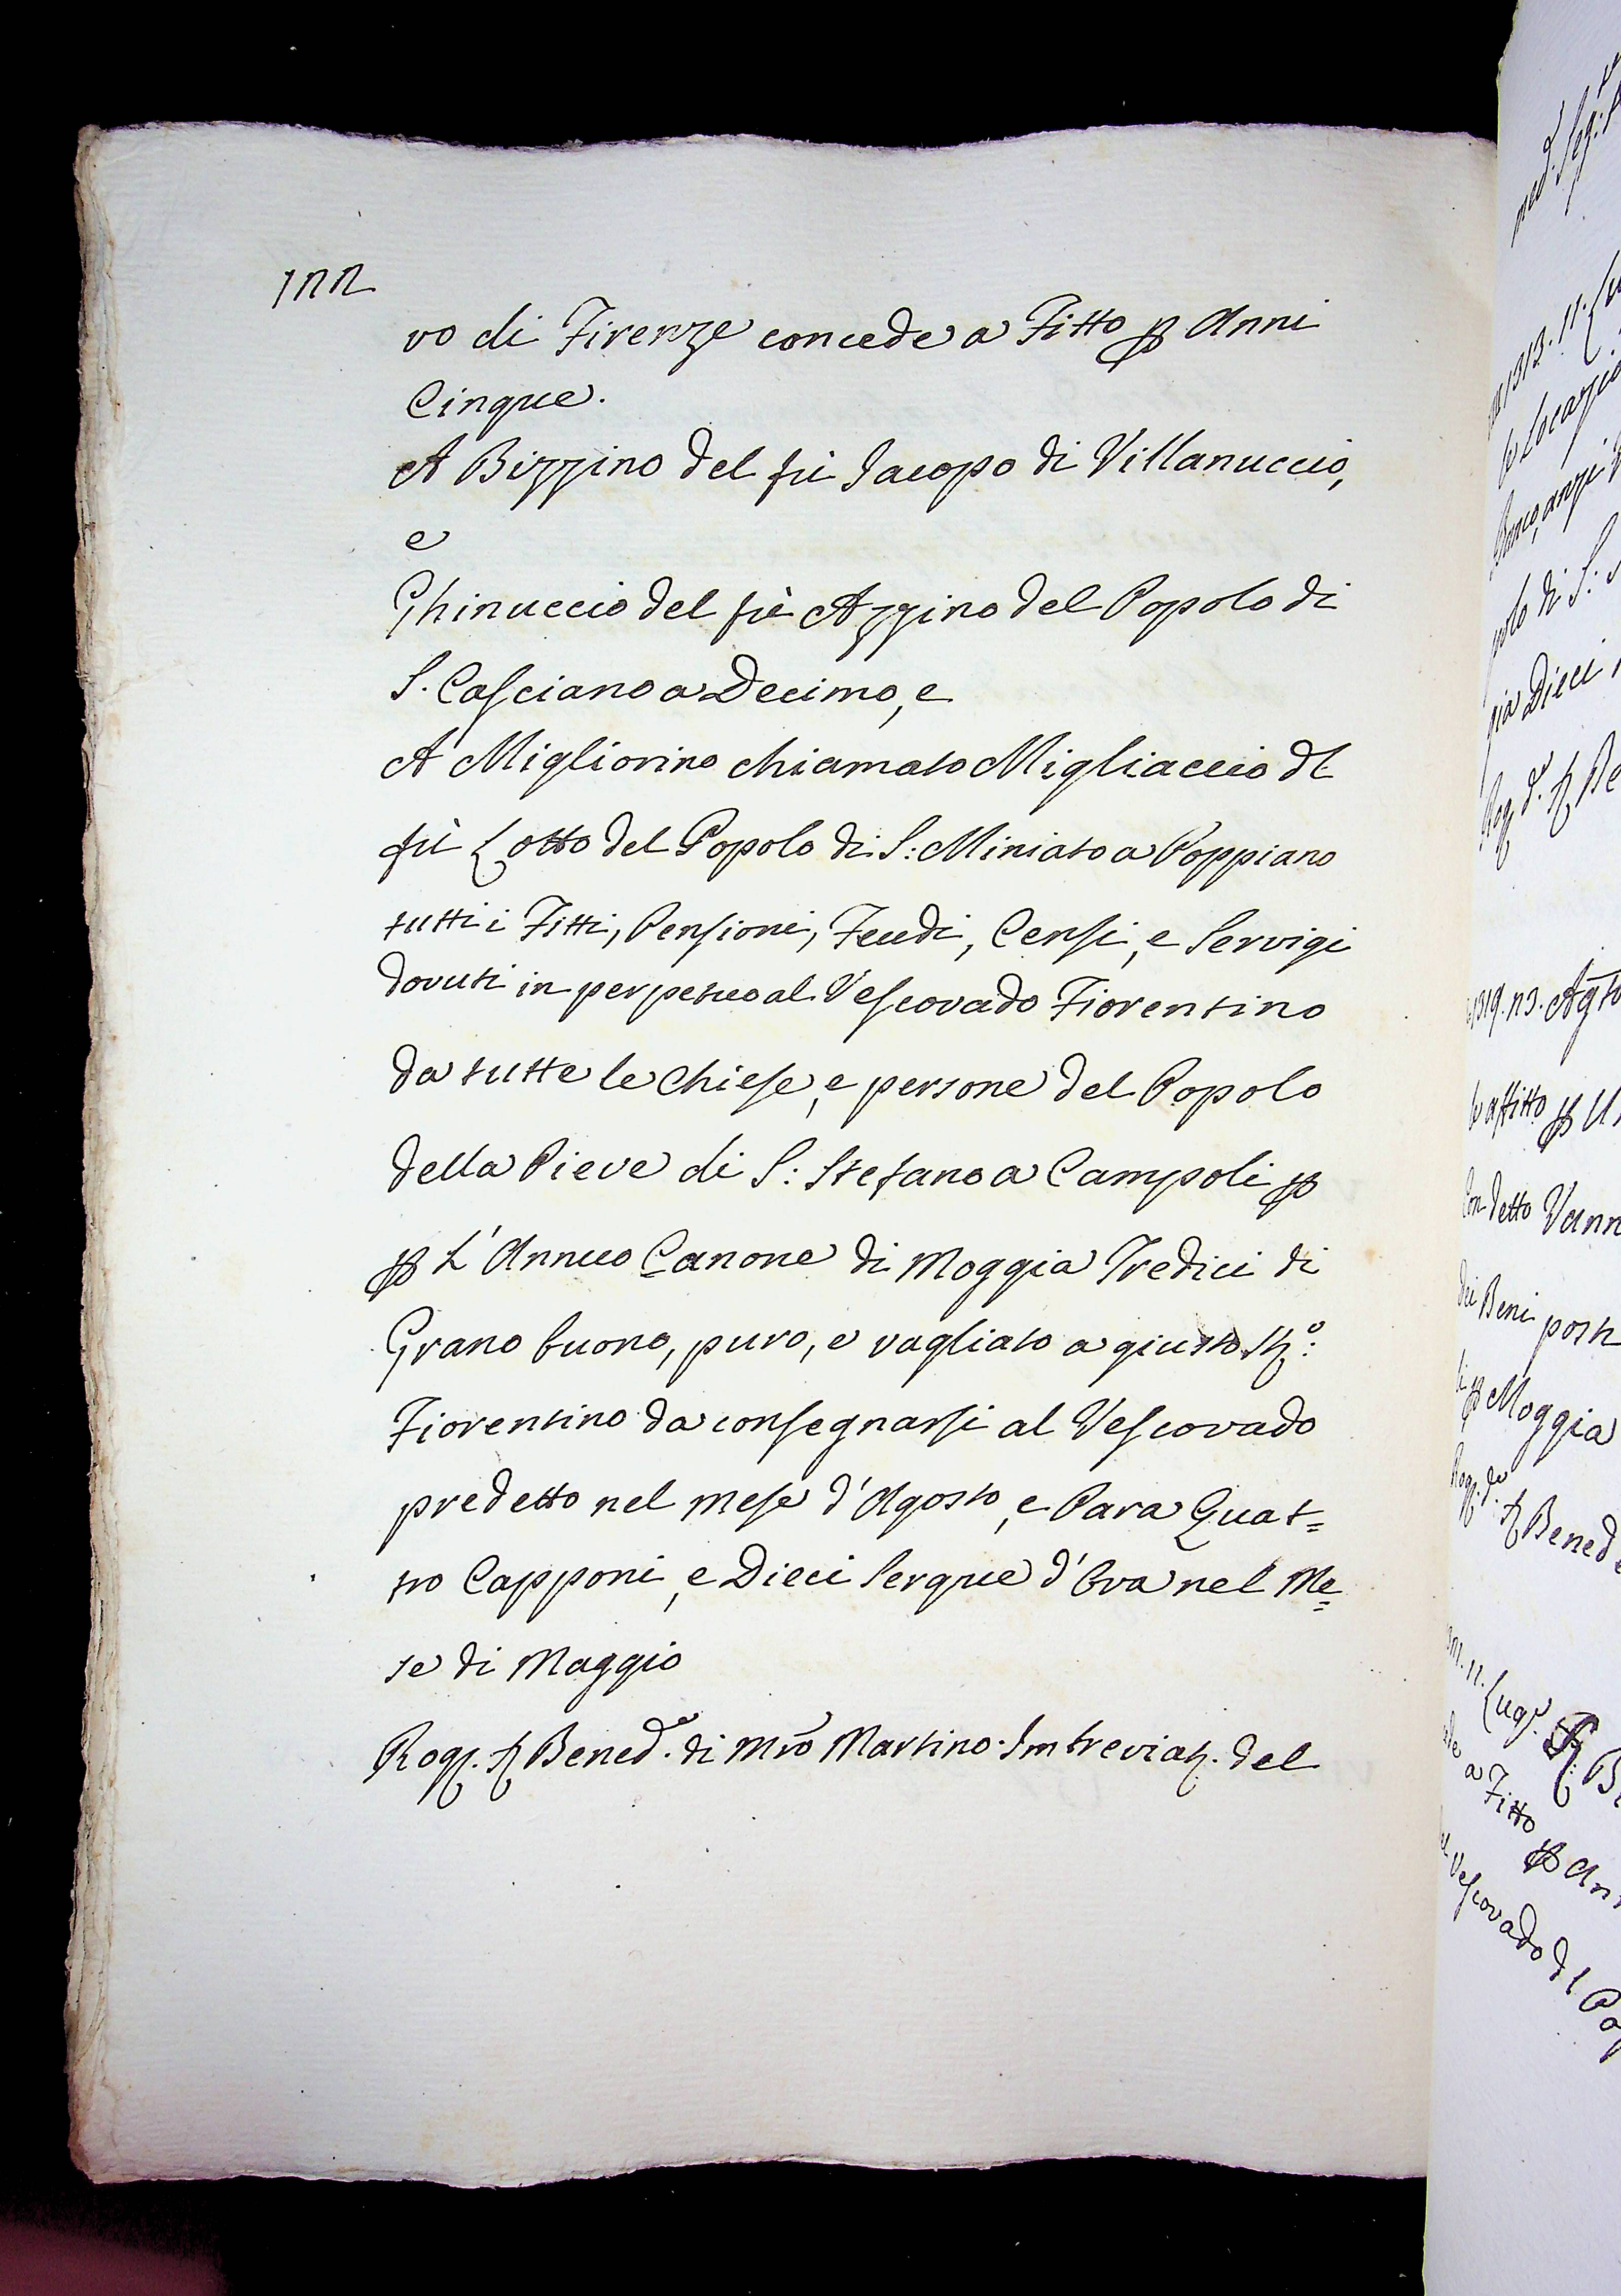 122
vo di Firenze concede a Fitto p Anni
Cinque.
A Bizzino del fù Iacopo di Villanuccio,
e
Ghinuccio del fù Azzino del Popolo di
S. Casciano a Decimo, e
A Migliorino chiamato Migliaccio dl
fù Lotto del Popolo di S: Miniato a Poppiano
tutti i Fitti, Pensioni, Feudi, Censi, e Servigi
dovuti in perpetuo al Vescovado Fiorentino
da tutte le Chiese, e persone del Popolo
della Pieve di S: Stefano a Campoli p
p L'Annuo Canone di Moggia Tredici di
Grano buono, puro, e vagliato a giusto
Fiorentino da consegnarsi al Vescovado
predetto nel mese d'Agosto, e Para Quat=
tro Capponi, e Dieci Serque d'Ova nel Me=
se di Maggio
Rog. Bened. di Mro Martino Imbreviat. del
1313. 11.
le Locazio
olo di S:
gia Dieci
1319. 23. Agto
e affitto p Un
Con detto Vann
dei Beni posti
li p Moggia
Bened
11. Lug.
a Fitto p An
Vescovado dl Po